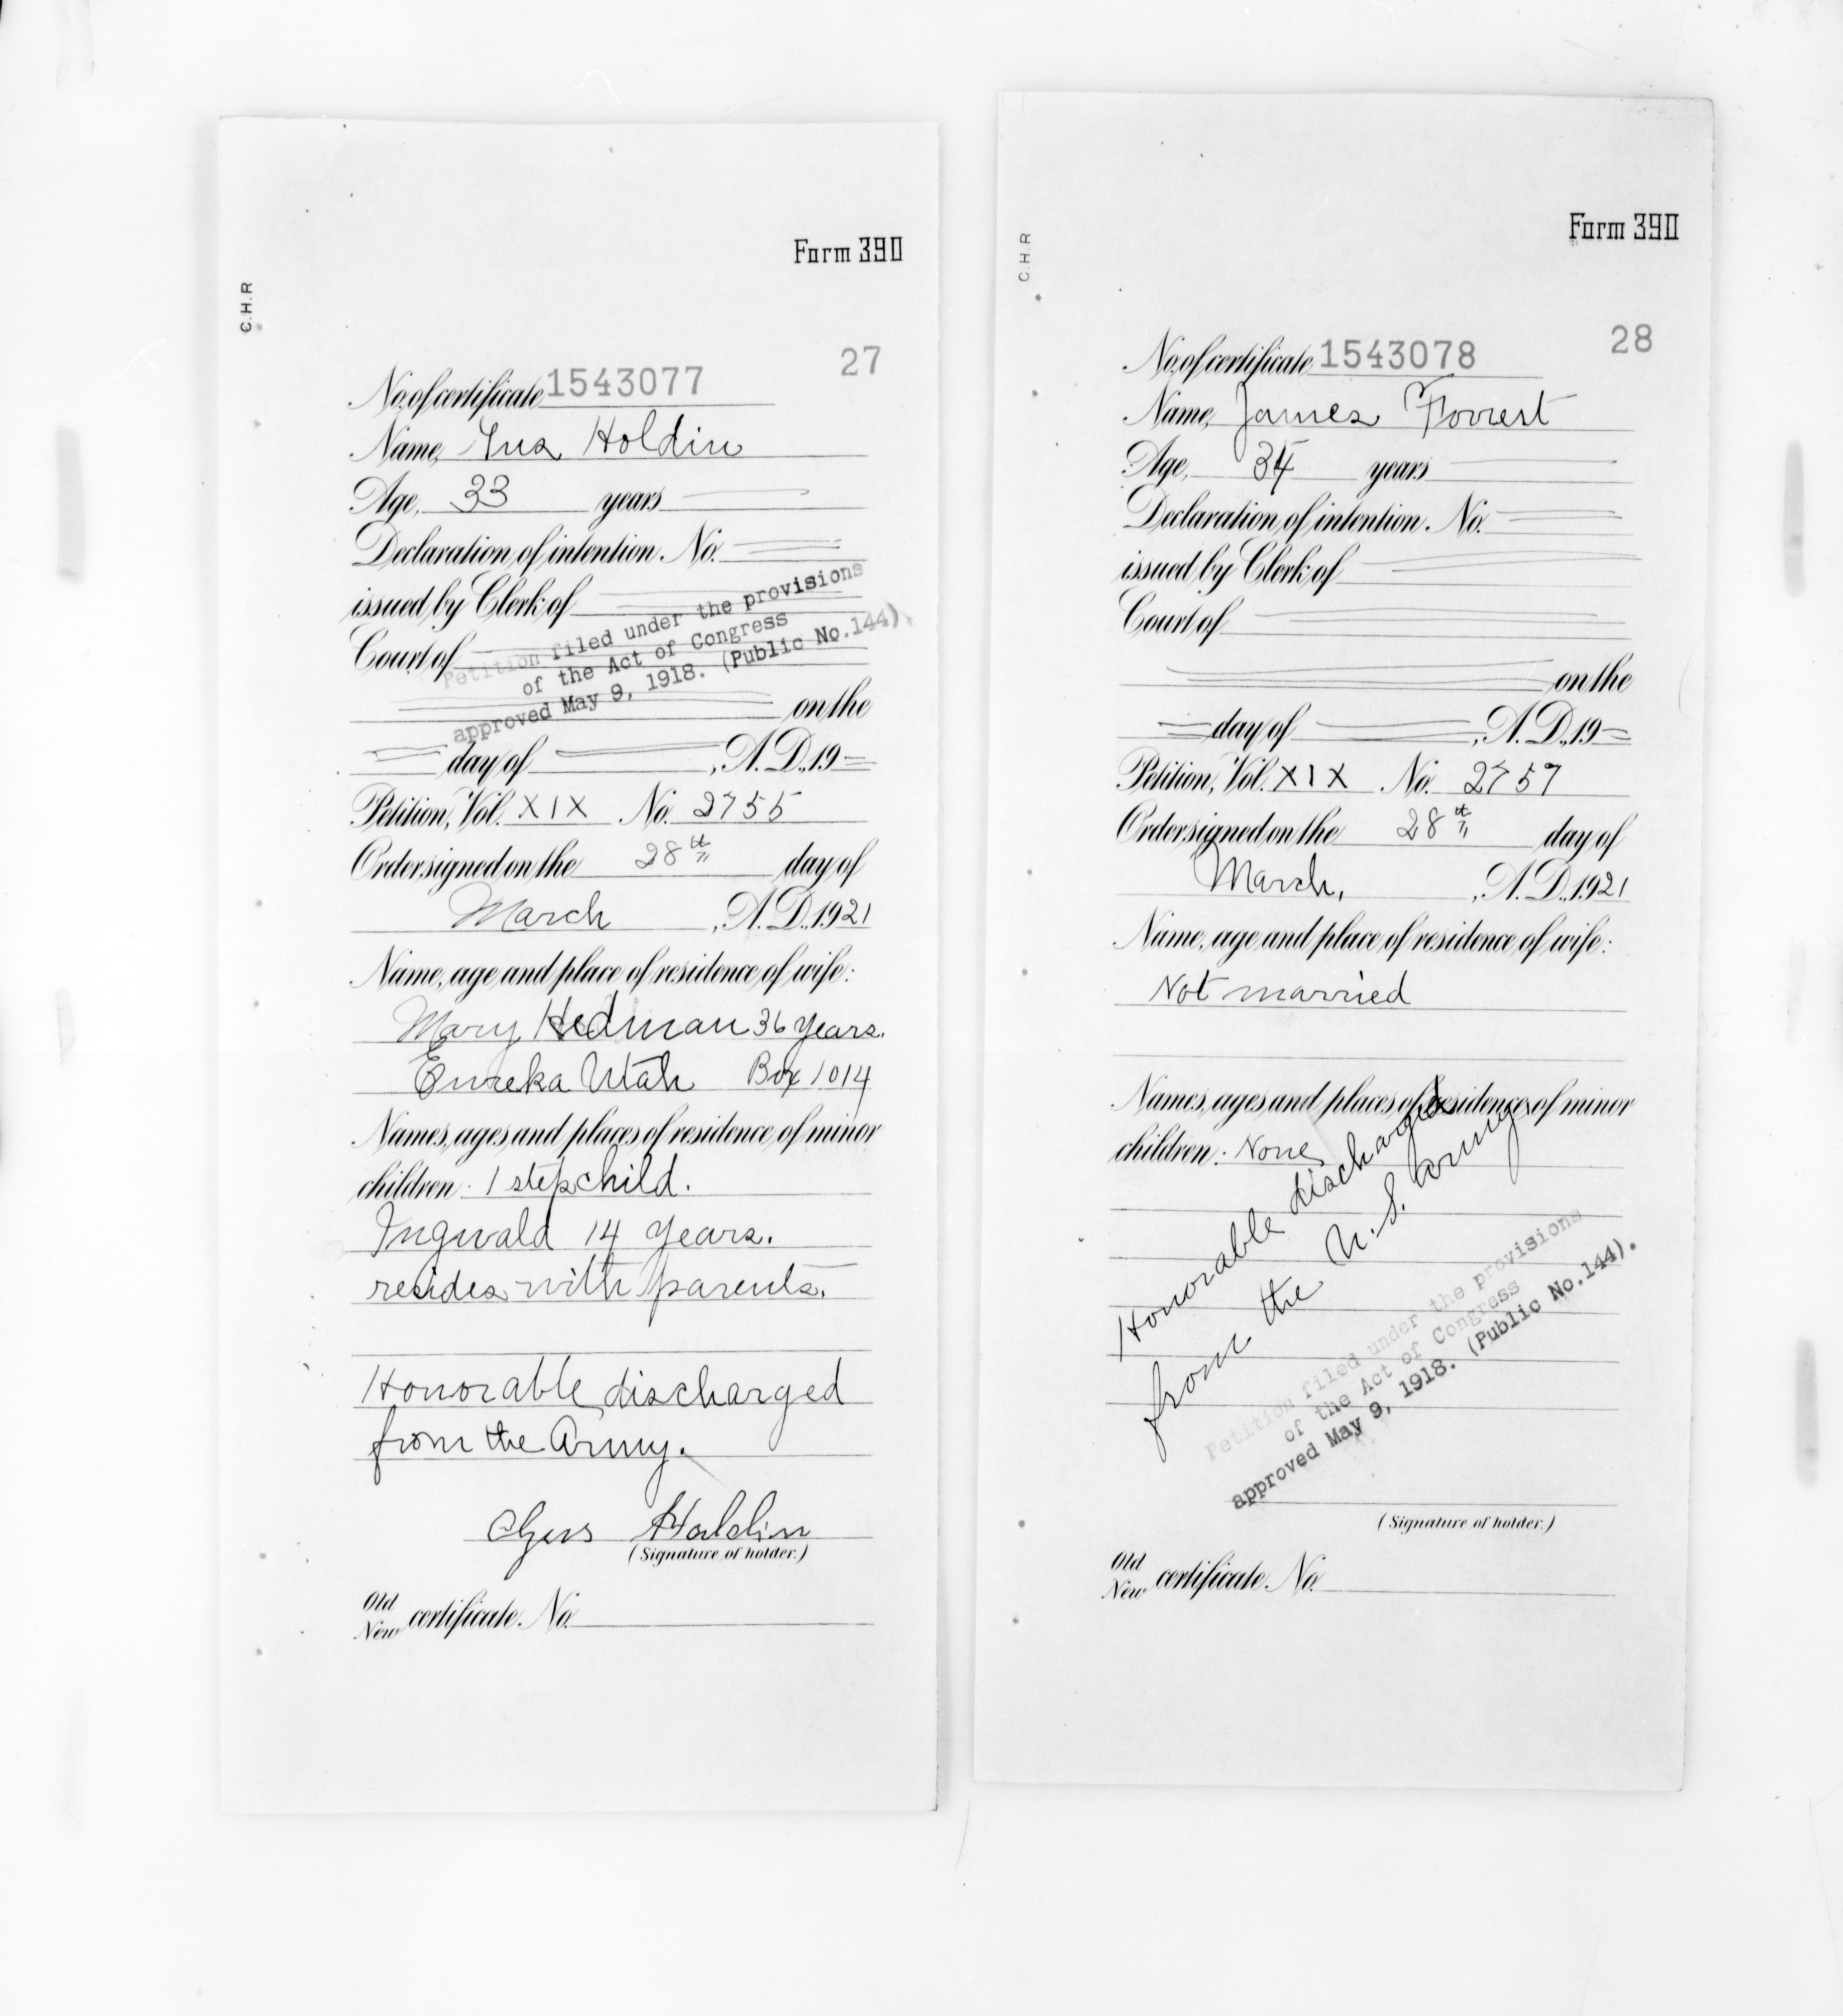 Form 390
C.H.R
27
No. of certificate 1543077
Name, Gus Holdin
Age, 33 years
Declaration of intention. No.
issued by Clerk of
Court of
Petition filed under the provisions
of the Act of Congress
approved May 9, 1918. (Public No.144).
on the
day of , A. D., 19
Petition, Vol. XIX No. 2755
Order signed on the 28th day of
March , A. D., 1921
Name, age and place of residence of wife:
Mary Hedman 36 years.
Eureka Utah Box 1014
Names, ages and places of residence of minor
children: 1 stepchild.
Ingwald 14 years.
resides with parents.
Honorable discharged
from the Army.
Gus Holdin
(Signature of holder.)
Old
New certificate. No.
Form 390
C.H.R
28
No. of certificate 1543078
Name, James Forrest
Age, 34 years
Declaration of intention. No.
issued by Clerk of
Court of
on the
day of , A. D., 19
Petition, Vol. XIX No. 2757
Order signed on the 28th day of
March, , A. D., 1921
Name, age and place of residence of wife:
Not married
Names, ages and places of residence of minor
children: None
Honorable discharged
from the U.S. Army
Petition filed under the provisions
of the Act of Congress
approved May 9, 1918. (Public No.144).
(Signature of holder.)
Old
New certificate. No.